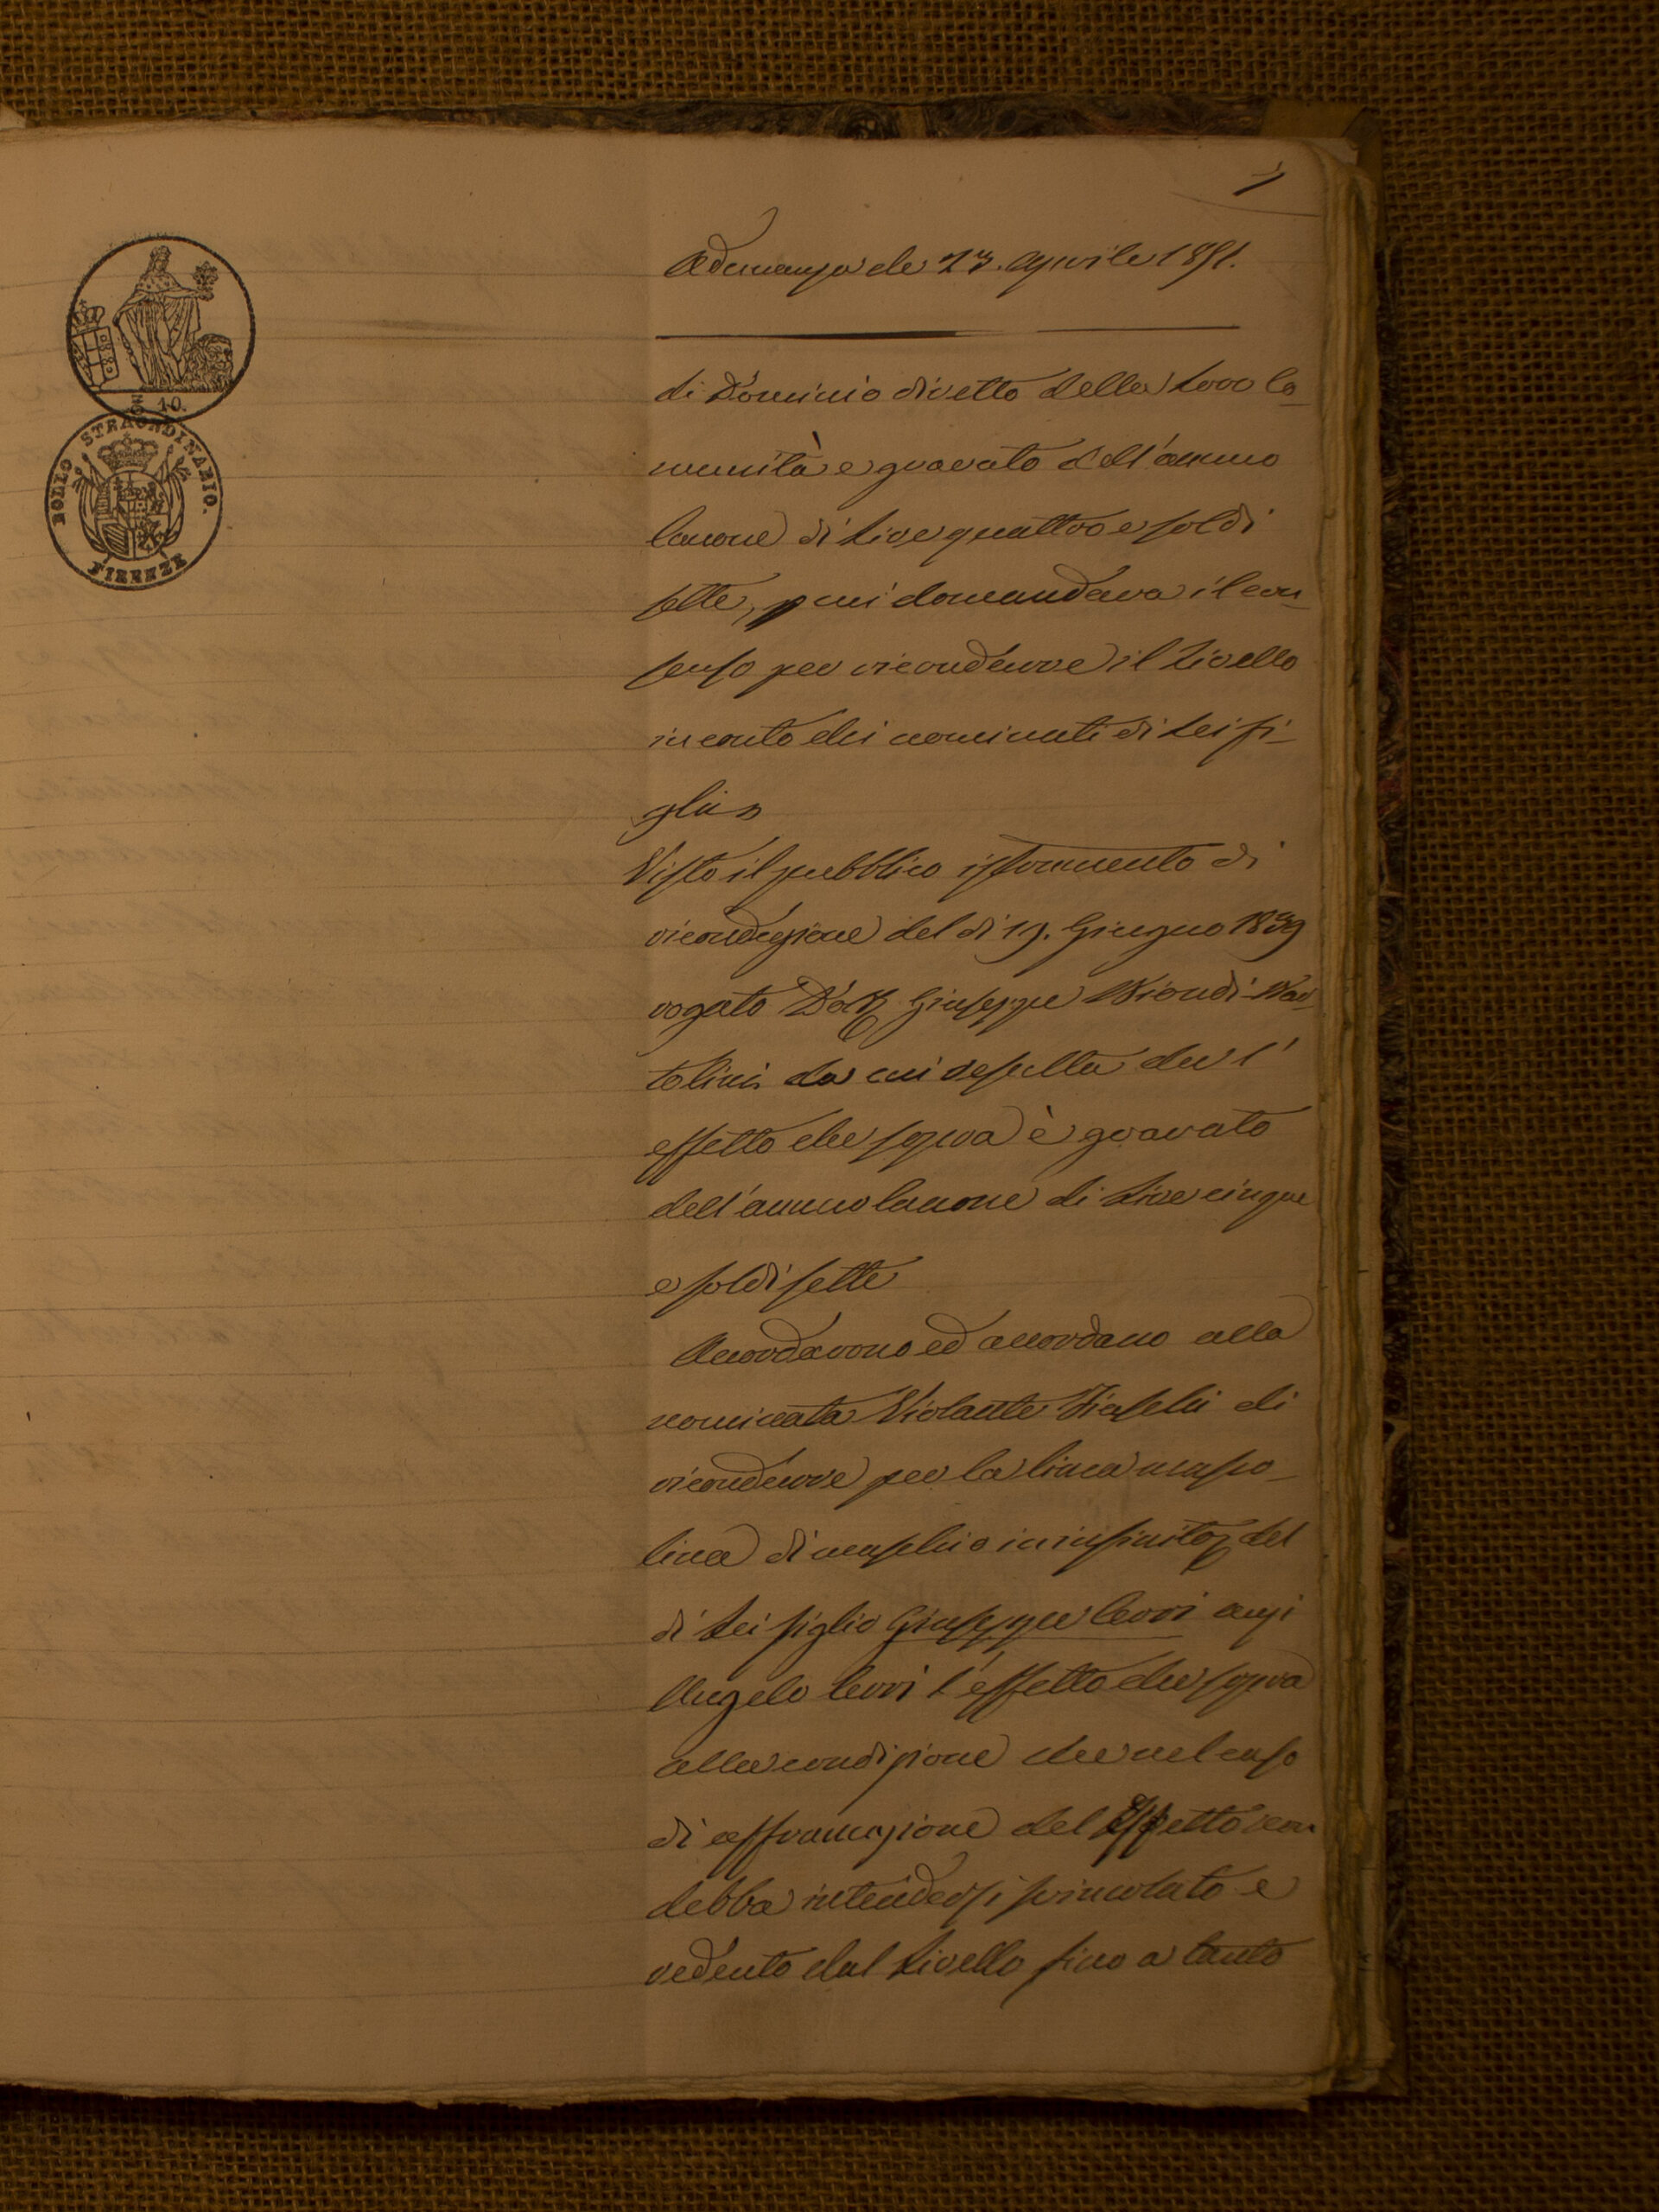 1
Adunanza de 23. Aprile 1851.
10.
BOLLO STRAORDINARIO.
FIRENZE
di Dominio diretto della Loro Co-
munità e gravato dell'annuo
Canone di Lire quattro e soldi
sette, e cui domandava il con-
senso per ricondurre il Livello
in conto dei nominati di Lei fi-
gli
Visto il pubblico istrumento di
riconduzione del dì 19. Giugno 1839
rogato Dott. Giuseppe Biondi Bar-
tolini da cui resulta che l'
effetto che sopra è gravato
dell'annuo Canone di Lire cinque
e soldi sette
Accordarono ed accordano alla
nominata Violante Fiaschi di
ricondurre per la linea masco-
lina di maschio in infinito del
di Lei figlio Giuseppe Cerri anzi
Angelo Cerri l'effetto che sopra
alla condizione che nel caso
di affrancazione del Effetto non
debba intendersi svincolato e
redento dal Livello fino a tanto